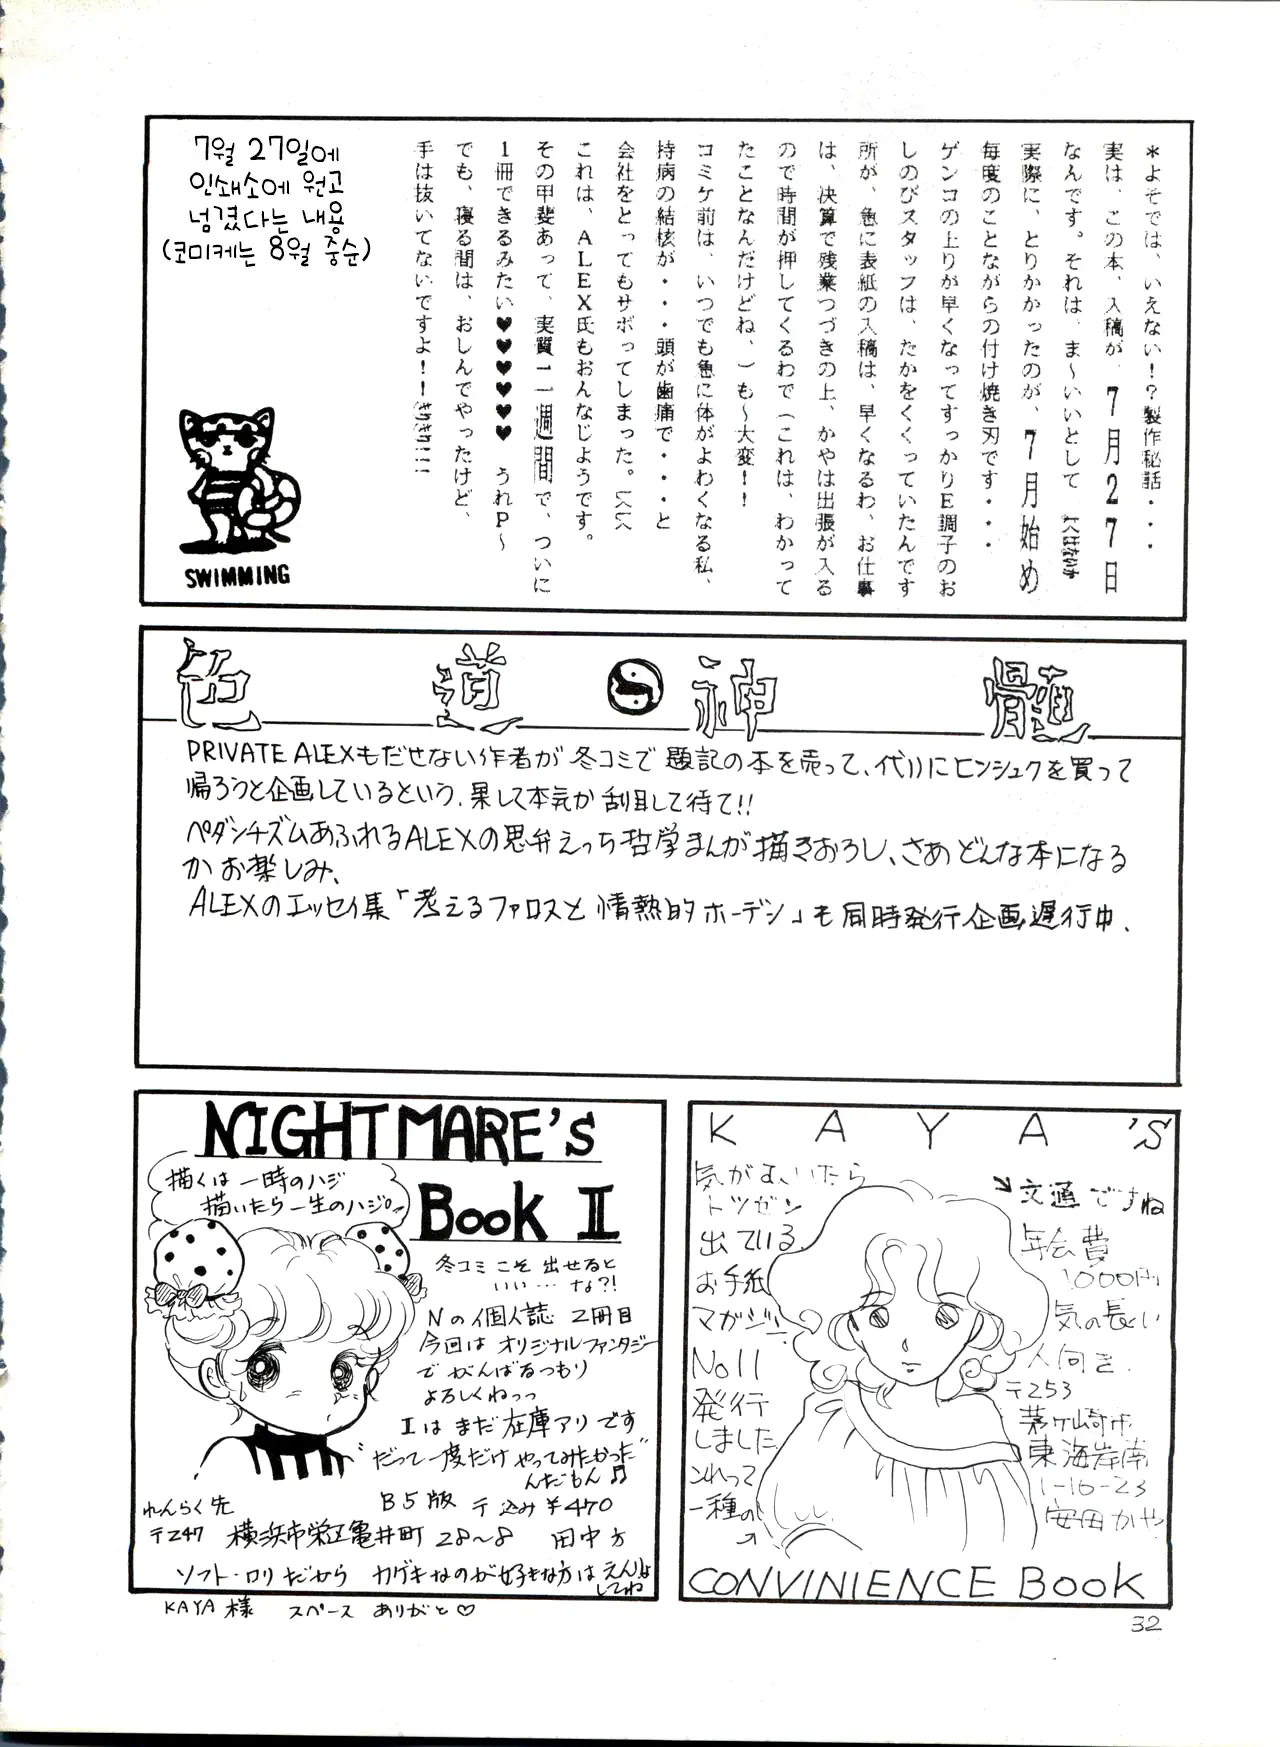 *よそでは、いえない!?製作秘話・・・
実は、この本、入稿が、7月27日
なんです。それは、ま～いいとして
実際に、とりかかったのが、7月始め
毎度のことながらの付け焼き刃です・・・
ゲンコの上りが早くなってすっかりE調子のお
しのびスタッフは、たかをくくっていたんです
所が、急に表紙の入稿は、早くなるわ、お仕事
は、決算で残業つづきの上、かやは出張が入る
ので時間が押してくるわで(これは、わかって
たことなんだけどね、)も～大変!!
コミケ前は、いつでも急に体がよわくなる私、
持病の結核が・・・頭が歯痛で・・・と
会社をとってもサボってしまった。
これは、ALEX氏もおんなじようです。
その甲斐あって、実質一週間で、ついに
1冊できるみたい♥♥♥♥♥ うれP～
でも、寝る間は、おしんでやったけど、
手は抜いてないですよ!!
7월 27일에
인쇄소에 원고
넘겼다는 내용
(코미케는 8월 중순)
SWIMMING
色道☯神髄
PRIVATE ALEXもだせない作者が冬コミで題記の本を売って、代りにヒンシュクを買って
帰ろうと企画しているという、果して本気か刮目して待て!!
ペダンチズムあふれるALEXの思弁えっち哲学まんが描きおろし、さあどんな本になる
かお楽しみ、
ALEXのエッセイ集「考えるファロスと情熱的ホーデン」も同時発行企画遅行中.
NIGHTMARE'S
Book II
描くは一時のハジ
描いたら一生のハジ。
冬コミこそ出せると
いい…な?!
Nの個人誌 2冊目
今回はオリジナルファンタジー
でがんばるつもり
よろしくねっっ
Iはまだ在庫アリです
"だって一度だけやってみたかった"
んだもん♬
れんらく先 B5版 〒込み¥470
〒247 横浜市栄区亀井町28～8 田中方
ソフト・ロリだから カゲキなのが好きな方はえんりょ
してね
KAYA様 スペース ありがと♡
KAYA'S
気がすいたら
トツゼン
出ている
お手紙
マガジン
No11
発行
しました
これって
一種の→
↘文通ですね
年会費
1000円
気の長い
人向き.
〒253
茅ヶ崎市
東海岸南
1-10-23
安田かや
CONVINIENCE BOOK
32